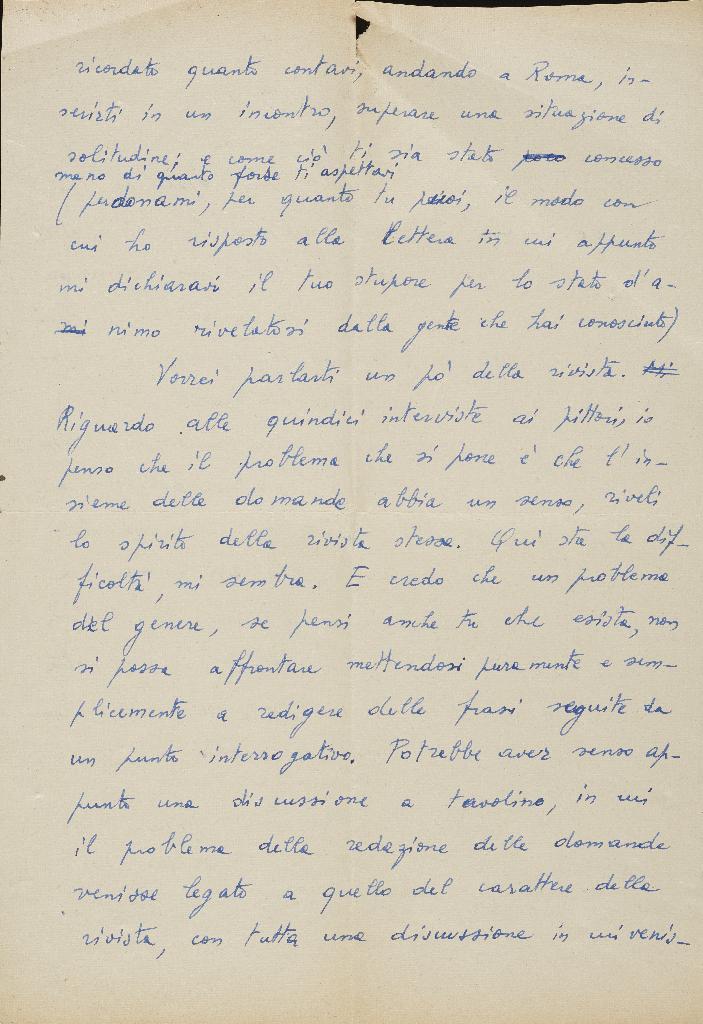 ricordato quanto contavi, andando a Roma, in-
serirti in un incontro, superare una situazione di
solitudine; e come ciò ti sia stato poco concesso
meno di quanto forse ti aspettavi
(perdonami, per quanto tu puoi, il modo con
cui ho risposto alla lettera in cui appunto
mi dichiaravi il tuo stupore per lo stato d'a-
mi nimo rivelatosi dalla gente che hai conosciuto)
Vorrei parlarti un pò della rivista.
Riguardo alle quindici interviste ai pittori, io
penso che il problema che si pone è che l'in-
sieme delle domande abbia un senso, riveli
lo spirito della rivista stessa. Qui sta la dif-
ficoltà, mi sembra. E credo che un problema
del genere, se pensi anche tu che esista, non
si possa affrontare mettendosi puramente e sem-
plicemente a redigere delle frasi seguite da
un punto interrogativo. Potrebbe aver senso ap-
punto una discussione a tavolino, in cui
il problema della redazione delle domande
venisse legato a quello del carattere della
rivista, con tutta una discussione in cui venis-